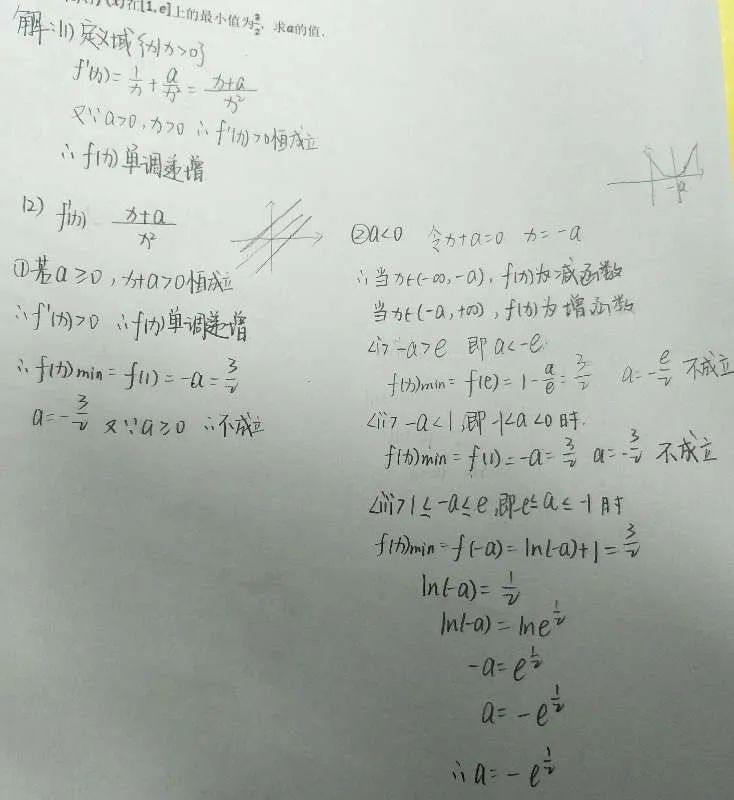 在[1,e]上的最小值为3/2, 求a的值.
解:(1) 定义域{x|x>0}
f'(x)=1/x+a/x²=(x+a)/x²
又∵a>0,x>0 ∴f'(x)>0恒成立
∴f(x)单调递增
(2) f'(x) (x+a)/x²
①若a≥0,x+a>0恒成立
∴f'(x)>0 ∴f(x)单调递增
∴f(x)min=f(1)=-a=3/2
a=-3/2 又∵a≥0 ∴不成立
-a
②a<0 令x+a=0 x=-a
∴当x∈(-∞,-a),f(x)为减函数
当x∈(-a,+∞),f(x)为增函数
<i>-a>e 即a<-e
f(x)min=f(e)=1-a/e=3/2 a=-e/2 不成立
<ii>-a<1,即-1<a<0时.
f(x)min=f(1)=-a=3/2 a=-3/2 不成立
<iii>1≤-a≤e,即-e≤a≤-1时
f(x)min=f(-a)=ln(-a)+1=3/2
ln(-a)=1/2
ln(-a)=lne^(1/2)
-a=e^(1/2)
a=-e^(1/2)
∴a=-e^(1/2)